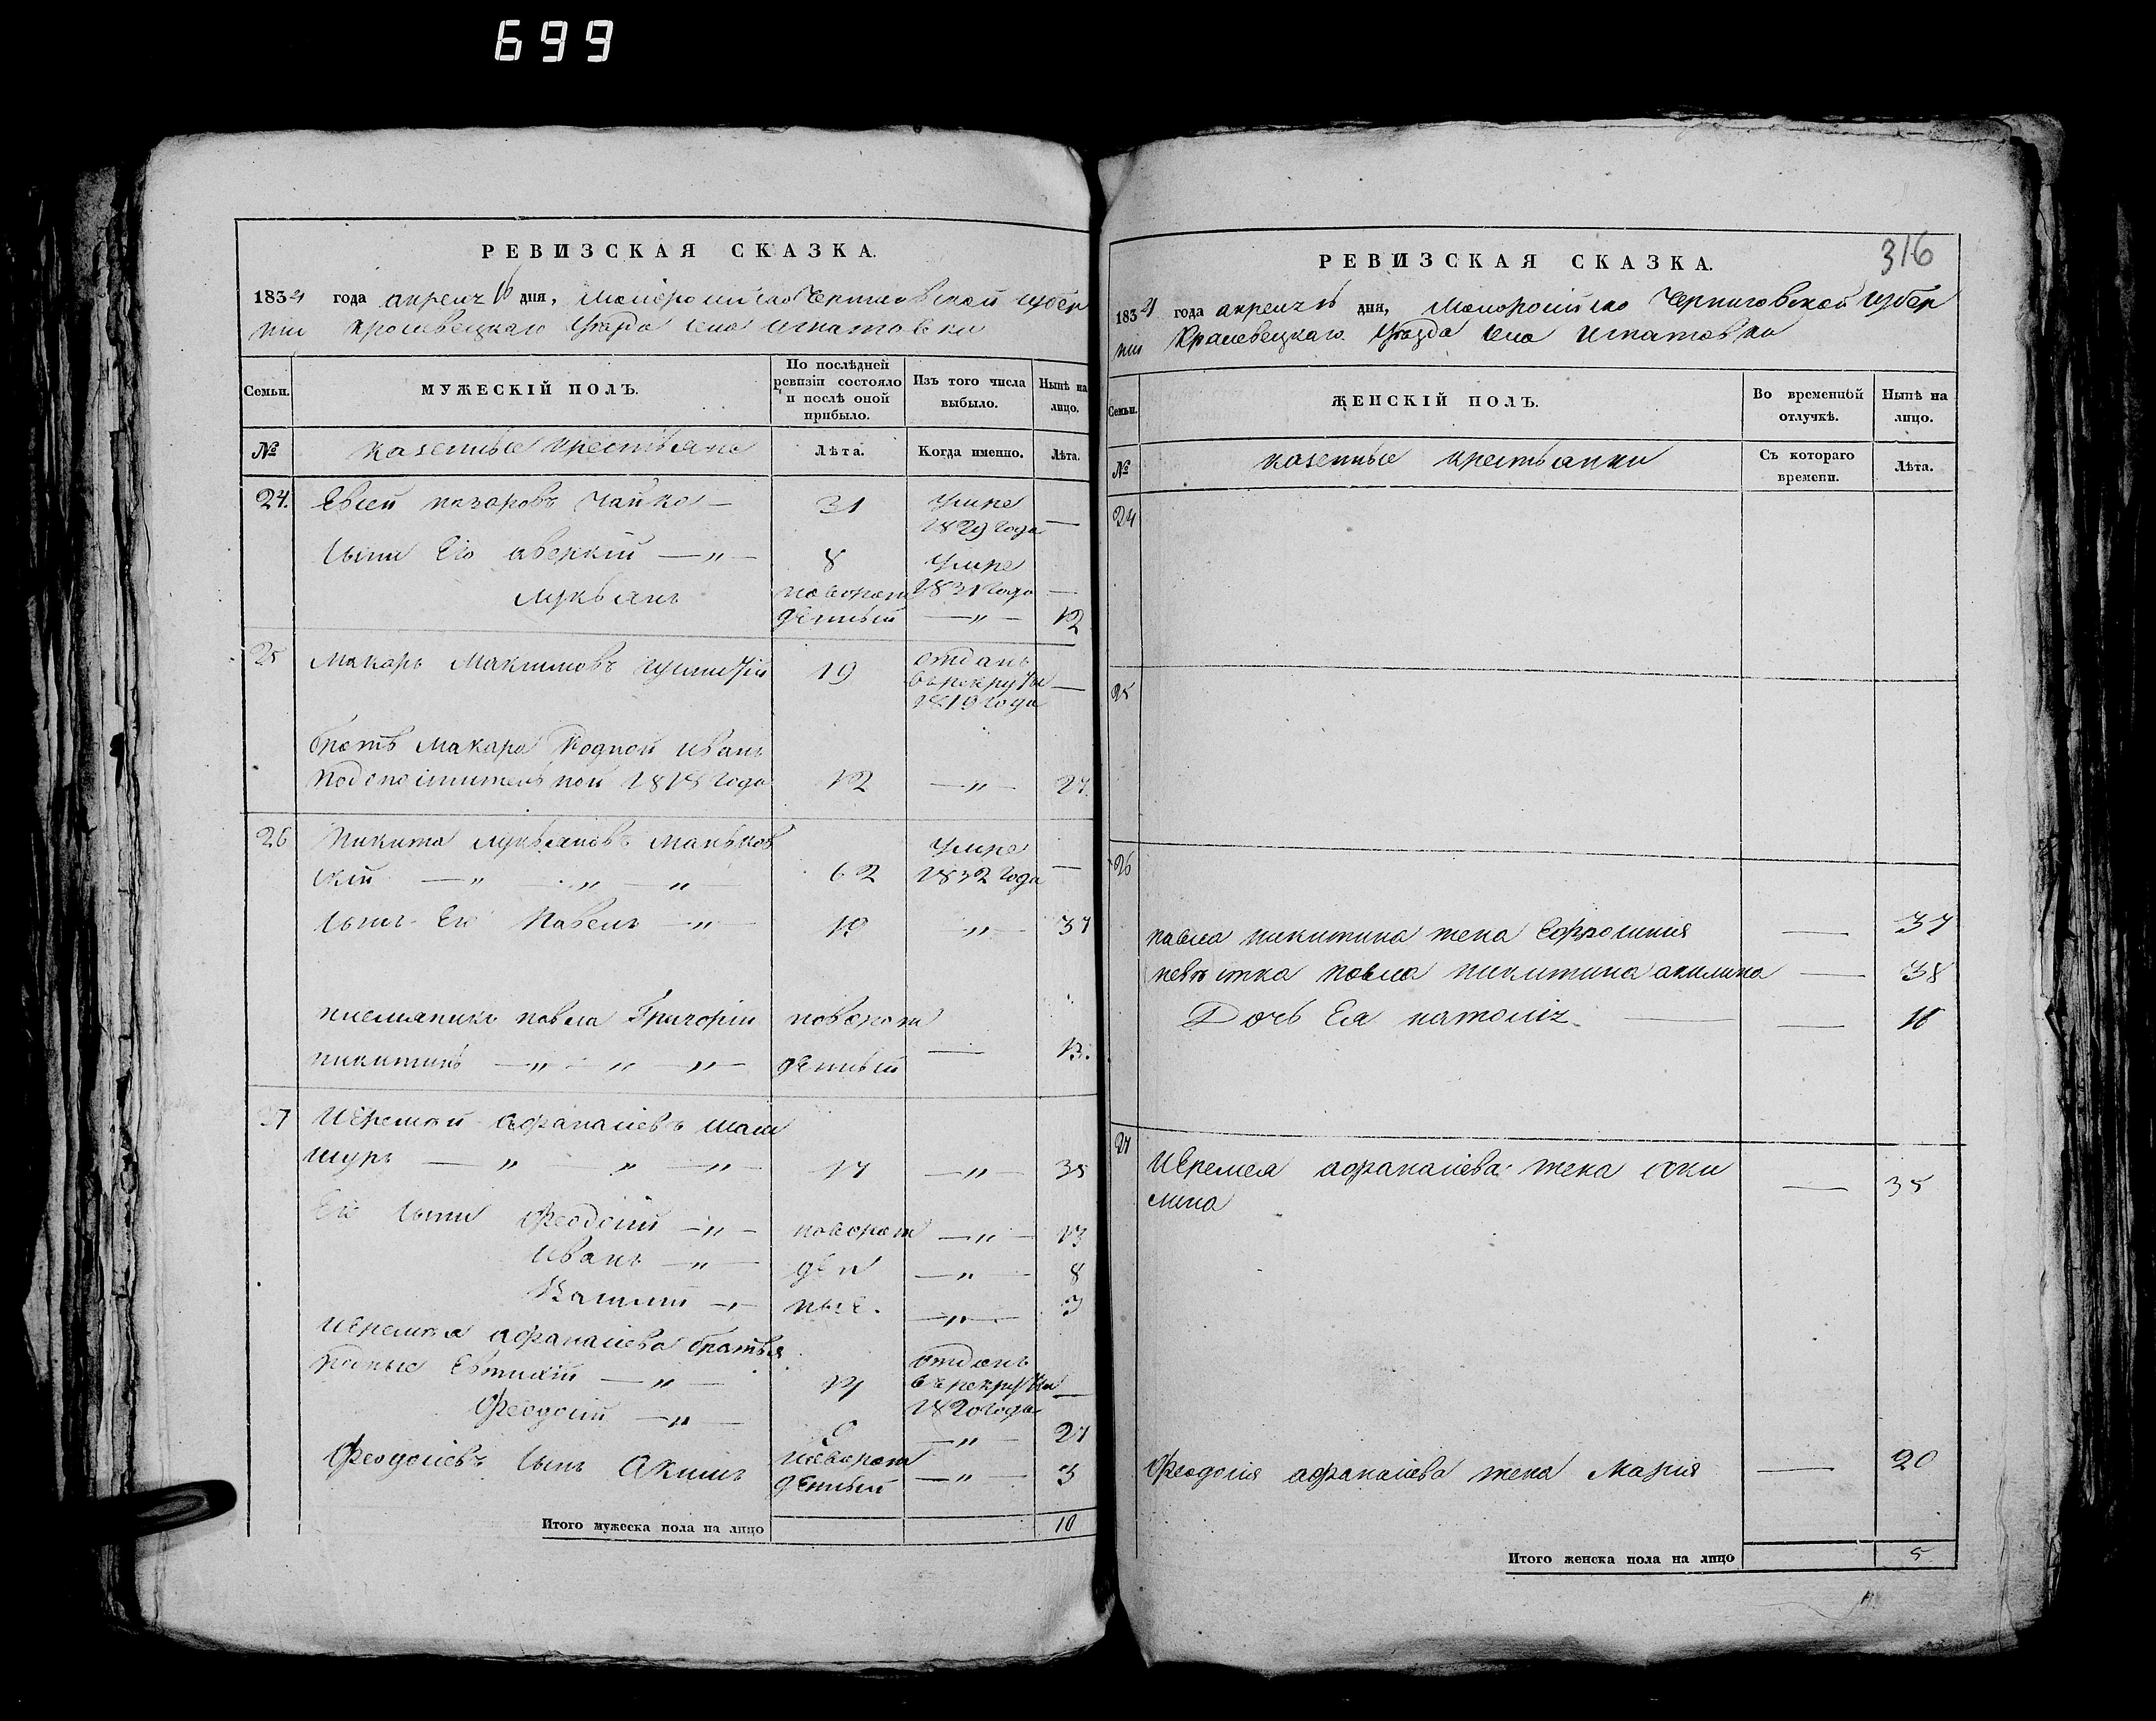 699
РЕВИЗСКАЯ СКАЗКА.
1834 года апреля 16 дня, Малоросийско Черниговской губер
нии кролевецкаго уезда села игнатовки
Семьи.
МУЖЕСКІЙ ПОЛЪ.
По послѣдней ревизіи состояло и послѣ оной прибыло.
Изъ того числа выбыло.
Нынѣ на лицо.
№
казенные крестьяне
Лѣта.
Когда именно.
Лѣта.
24. Евсей назаровъ Чайка — 31 умре 1829 года —
сыни Его аверкий —„— 8 умре 1831 года —
лукьянъ новорож денный —„— 12
25 Макаръ Максимовъ 19 отданъ въ рекруты 1819 года —
братъ макара Родной иванъ
12 —„— 27.
26 Никита лукьяновъ маньков
ский —„—„—„— 62 умре 1832 года —
сынъ Его Павелъ —„— 19 —„— 37
племяникъ павла Григорій новорож
никитинъ —„—„—„— денный — 13.
27 Иеремей афанасиевъ шаш
шуръ —„—„—„— 17 —„— 35
Его сыни Феодосий —„— новорож —„— 13
Иванъ —„— ден —„— 8
Василий —„— ные. —„— 3
Иеремея афанасиева братья
родные Евтихий —„— 14 отданъ въ рекруты 1820 года —
Феодосий —„— 9 —„— 27
Феодосиевъ сынъ Акимъ новорож денный —„— 3
Итого мужеска пола на лицо 10
316
РЕВИЗСКАЯ СКАЗКА.
1834 года апреля 16 дня, Малоросийско Черниговской губер
нии Кралевецкаго уезда села игнатовки
Семьи.
ЖЕНСКІЙ ПОЛЪ.
Во временной отлучкѣ.
Нынѣ на лицо.
№
казенные крестьянки
Съ котораго времени.
Лѣта.
24
25
26
павла никитина жена Ефросиния — 37
невѣстка павла никитина акилина — 38
Дочь Ея наталия — — 16
27 Иеремея афанасиева жена
— 35
Феодосия афанасиева жена Мария — 20
Итого женска пола на лицо 5